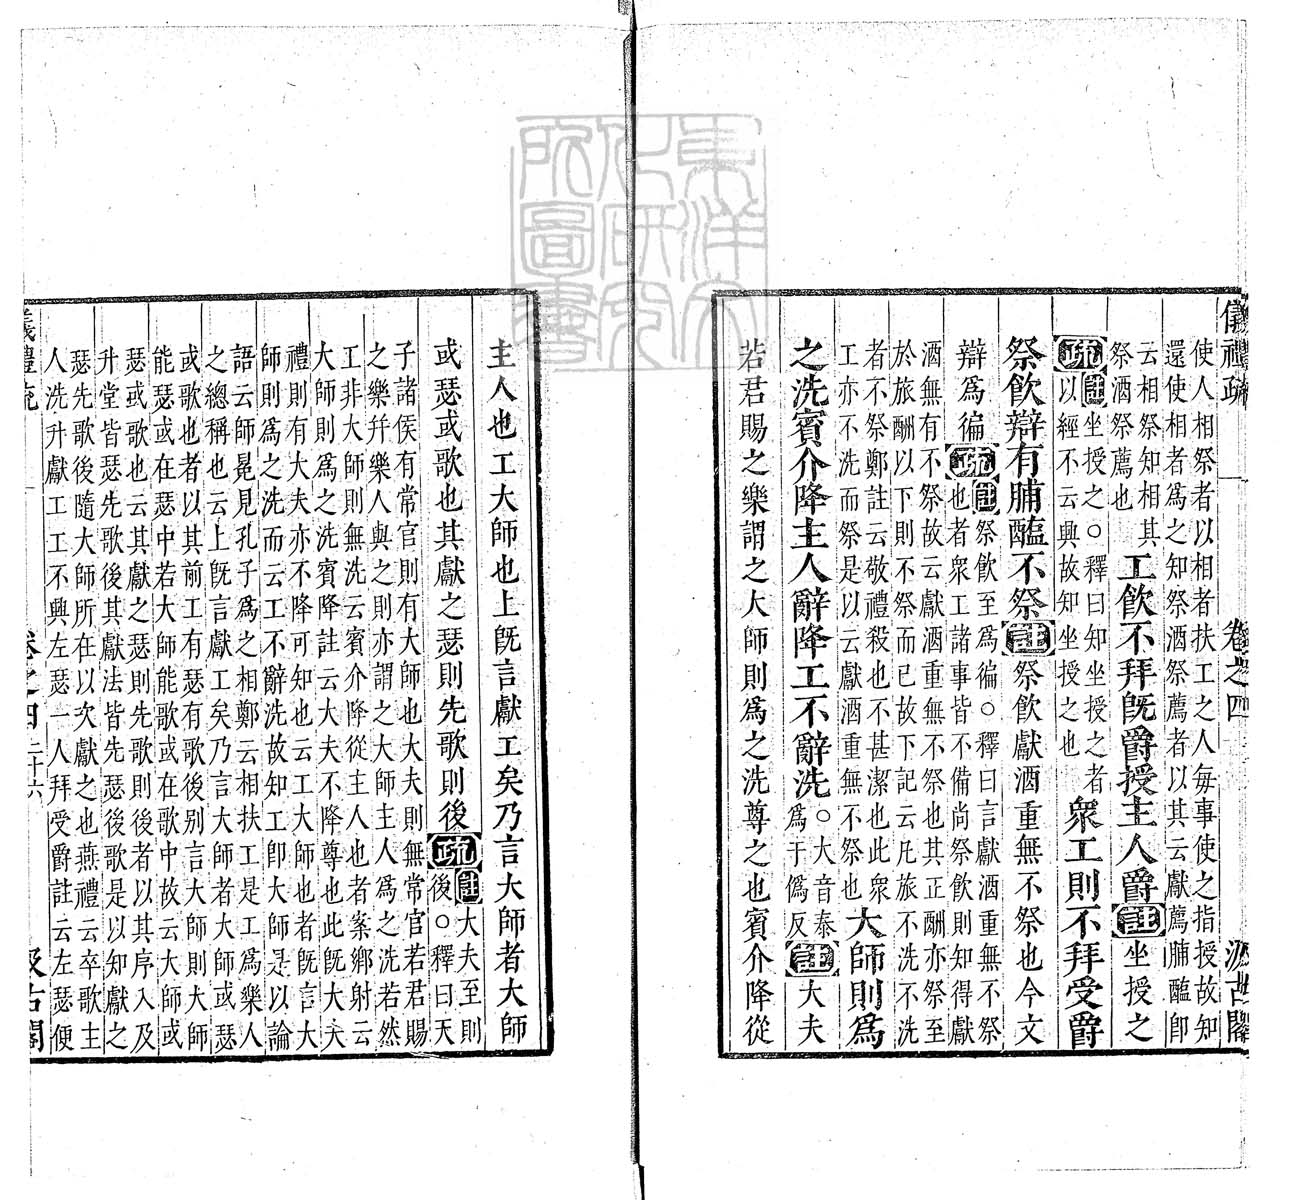 儀禮疏 卷之四 汲古閣
使人相祭者以相者扶工之人每事使之指授故知
還使相者爲之知祭酒祭薦者以其云獻薦脯醢卽
云相祭知相其
祭酒祭薦也
工飲不拜旣爵授主人爵註坐授之
疏註坐授之○釋曰知坐授之者
以經不云興故知坐授之也
衆工則不拜受爵
祭飲辯有脯醢不祭註祭飲獻酒重無不祭也今文
辯爲徧
疏註祭飲至爲徧○釋曰言獻酒重無不祭
也者衆工諸事皆不備尚祭飲則知得獻
酒無有不祭故云獻酒重無不祭也其正酬亦祭至
於旅酬以下則不祭而已故下記云凡旅不洗不洗
者不祭鄭註云敬禮殺也不甚潔也此衆
工亦不洗而祭是以云獻酒重無不祭也
大師則爲
之洗賓介降主人辭降工不辭洗
○大音泰
爲于僞反
註大夫
若君賜之樂謂之大師則爲之洗尊之也賓介降從
主人也工大師也上旣言獻工矣乃言大師者大師
或瑟或歌也其獻之瑟則先歌則後
疏註大夫至則
後○釋曰天
子諸侯有常官則有大師也大夫則無常官若君賜
之樂幷樂人與之則亦謂之大師主人爲之洗若然
工非大師則無洗云賓介降從主人也者案鄉射云
大師則爲之洗賓降註云大夫不降尊也此旣大夫
禮則有大夫亦不降可知也云工大師也者旣言大
師則爲之洗而云工不辭洗故知工卽大師是以論
語云師冕見孔子爲之相鄭云相扶工是工爲樂人
之總稱也云上旣言獻工矣乃言大師者大師或瑟
或歌也者以其前工有瑟有歌後別言大師則大師
能瑟或在瑟中若大師能歌或在歌中故云大師或
瑟或歌也云其獻之瑟則先歌則後者以其序入及
升堂皆瑟先歌後其獻法皆先瑟後歌是以知獻之
瑟先歌後隨大師所在以次獻之也燕禮云卒歌主
人洗升獻工工不興左瑟一人拜受爵註云左瑟便
儀禮疏 卷之四 二十六 汲古閣